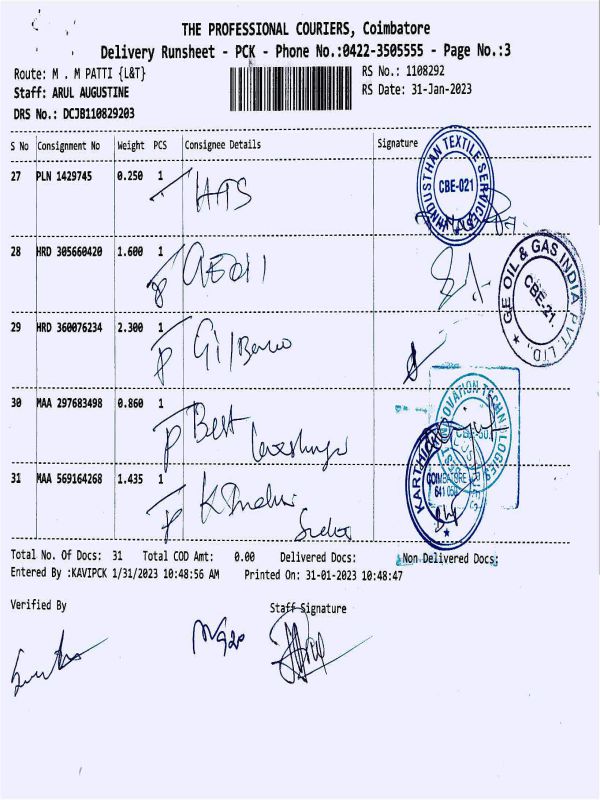 THE PROFESSIONAL COURIERS, Coimbatore
Delivery Runsheet - PCK - Phone No.:0422-3505555 - Page No.:3
Route: M . M PATTI {L&T} RS No.: 1108292
Staff: ARUL AUGUSTINE RS Date: 31-Jan-2023
DRS No.: DCJB110829203
S No Consignment No Weight PCS Consignee Details Signature
27 PLN 1429745 0.250 1 HTS
HINDUSTHAN TEXTILE SERVICES
CBE-021
28 HRD 305660420 1.600 1
GE OIL & GAS INDIA PVT. LTD.,
CBE-21.
29 HRD 360076234 2.300 1 Gilbarco
30 MAA 297683498 0.860 1 Best
31 MAA 569164268 1.435 1
KARTHIK
COIMBATORE
641 050
Total No. Of Docs: 31 Total COD Amt: 0.00 Delivered Docs: Non Delivered Docs:
Entered By :KAVIPCK 1/31/2023 10:48:56 AM Printed On: 31-01-2023 10:48:47
Verified By Staff Signature